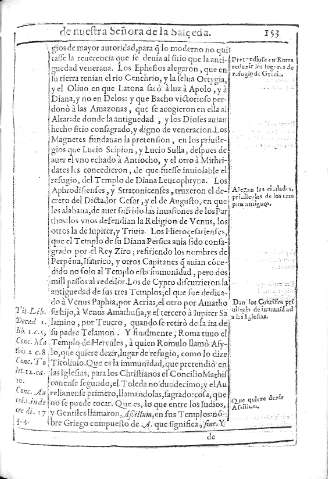 de nuestra Señora de la Salceda. 153
gios de mayor autoridad, para q̃ lo moderno no qui
tasse la reuerencia que se deuia al sitio que la anti-
guedad venerana. Los Ephesios alegaron, que en
su tierra tenian el rio Cenchrio, y la selua Ortygia,
y el Oliuo en que Latona sacó à luz à Apolo, y à
Diana, y no en Delos: y que Bacho victorioso per-
donó à las Amazonas, que se acogieron en ella al
Altar donde la antiguedad, y los Dioses auian
hecho sitio consagrado, y digno de veneracion. Los
Magnetes fundauan la pretension, en los priuile-
gios que Lucio Scipion, y Lucio Sulla, despues de
auer el vno echado à Antiocho, y el otro à Mithri-
dates les concedieron, de que fuesse inuiolable el
refugio, del Templo de Diana Leucophryna. Los
Aphrodisienses, y Stratonicenses, truxeron el de-
creto del Dictador Cesar, y el de Augusto, en que
los alabana, de auer sufrido las inuasiones de los Par
thos, los vnos defendian la Religion de Venus, los
otros la de Iupiter, y Triuia. Los Hierocesarienses,
que el Templo de su Diana Persica auia sido consa-
grado por el Rey Ziro; refiriendo los nombres de
Perpena, Isaurico, y otros Capitanes q̃ auian conce-
dido no solo al Templo esta immunidad, pero dos
mil passos al rededor. Los de Cypro discurrieron la
antiguedad de sus tres Templos, el que fue dedica-
do à Venus Paphia, por Aerias, el otro por Amatho
su hijo, à Venus Amathusia, y el tercero à Iupiter Sa
lamino, por Teucro, quando se retiró de la ira de
su padre Telamon. Y finalmente, Roma tuuo el
Templo de Hercules, à quien Romulo llamó Asy-
lo, que quiere dezir, lugar de refugio, como lo dize
Tito Liuio. Que es la immunidad, que pretendió en
las Iglesias, para los Christianos el Concilio Magũ-
cionense segundo, el Toledano duodecimo, y el Au-
relianense primero, llamandolas, sagrado: cosa, que
no se puede tocar. Que es, lo que entre los Iudios,
y Gentiles llamaron Asyllum, en sus Templos nõ-
bre Griego compuesto de A. que significa, sine. Y
de
Pretendiose en Roma
refugio de Grecia.
Alegan las ciudades,
priuilegios de los tiem
pos antiguos.
Dan los Concilios pri
uilegio de immunidad
a las Iglesias.
Que quiere dezir
Asillum.
Tit. Lib.
Decad. 1.
lib. 1. c. 5.